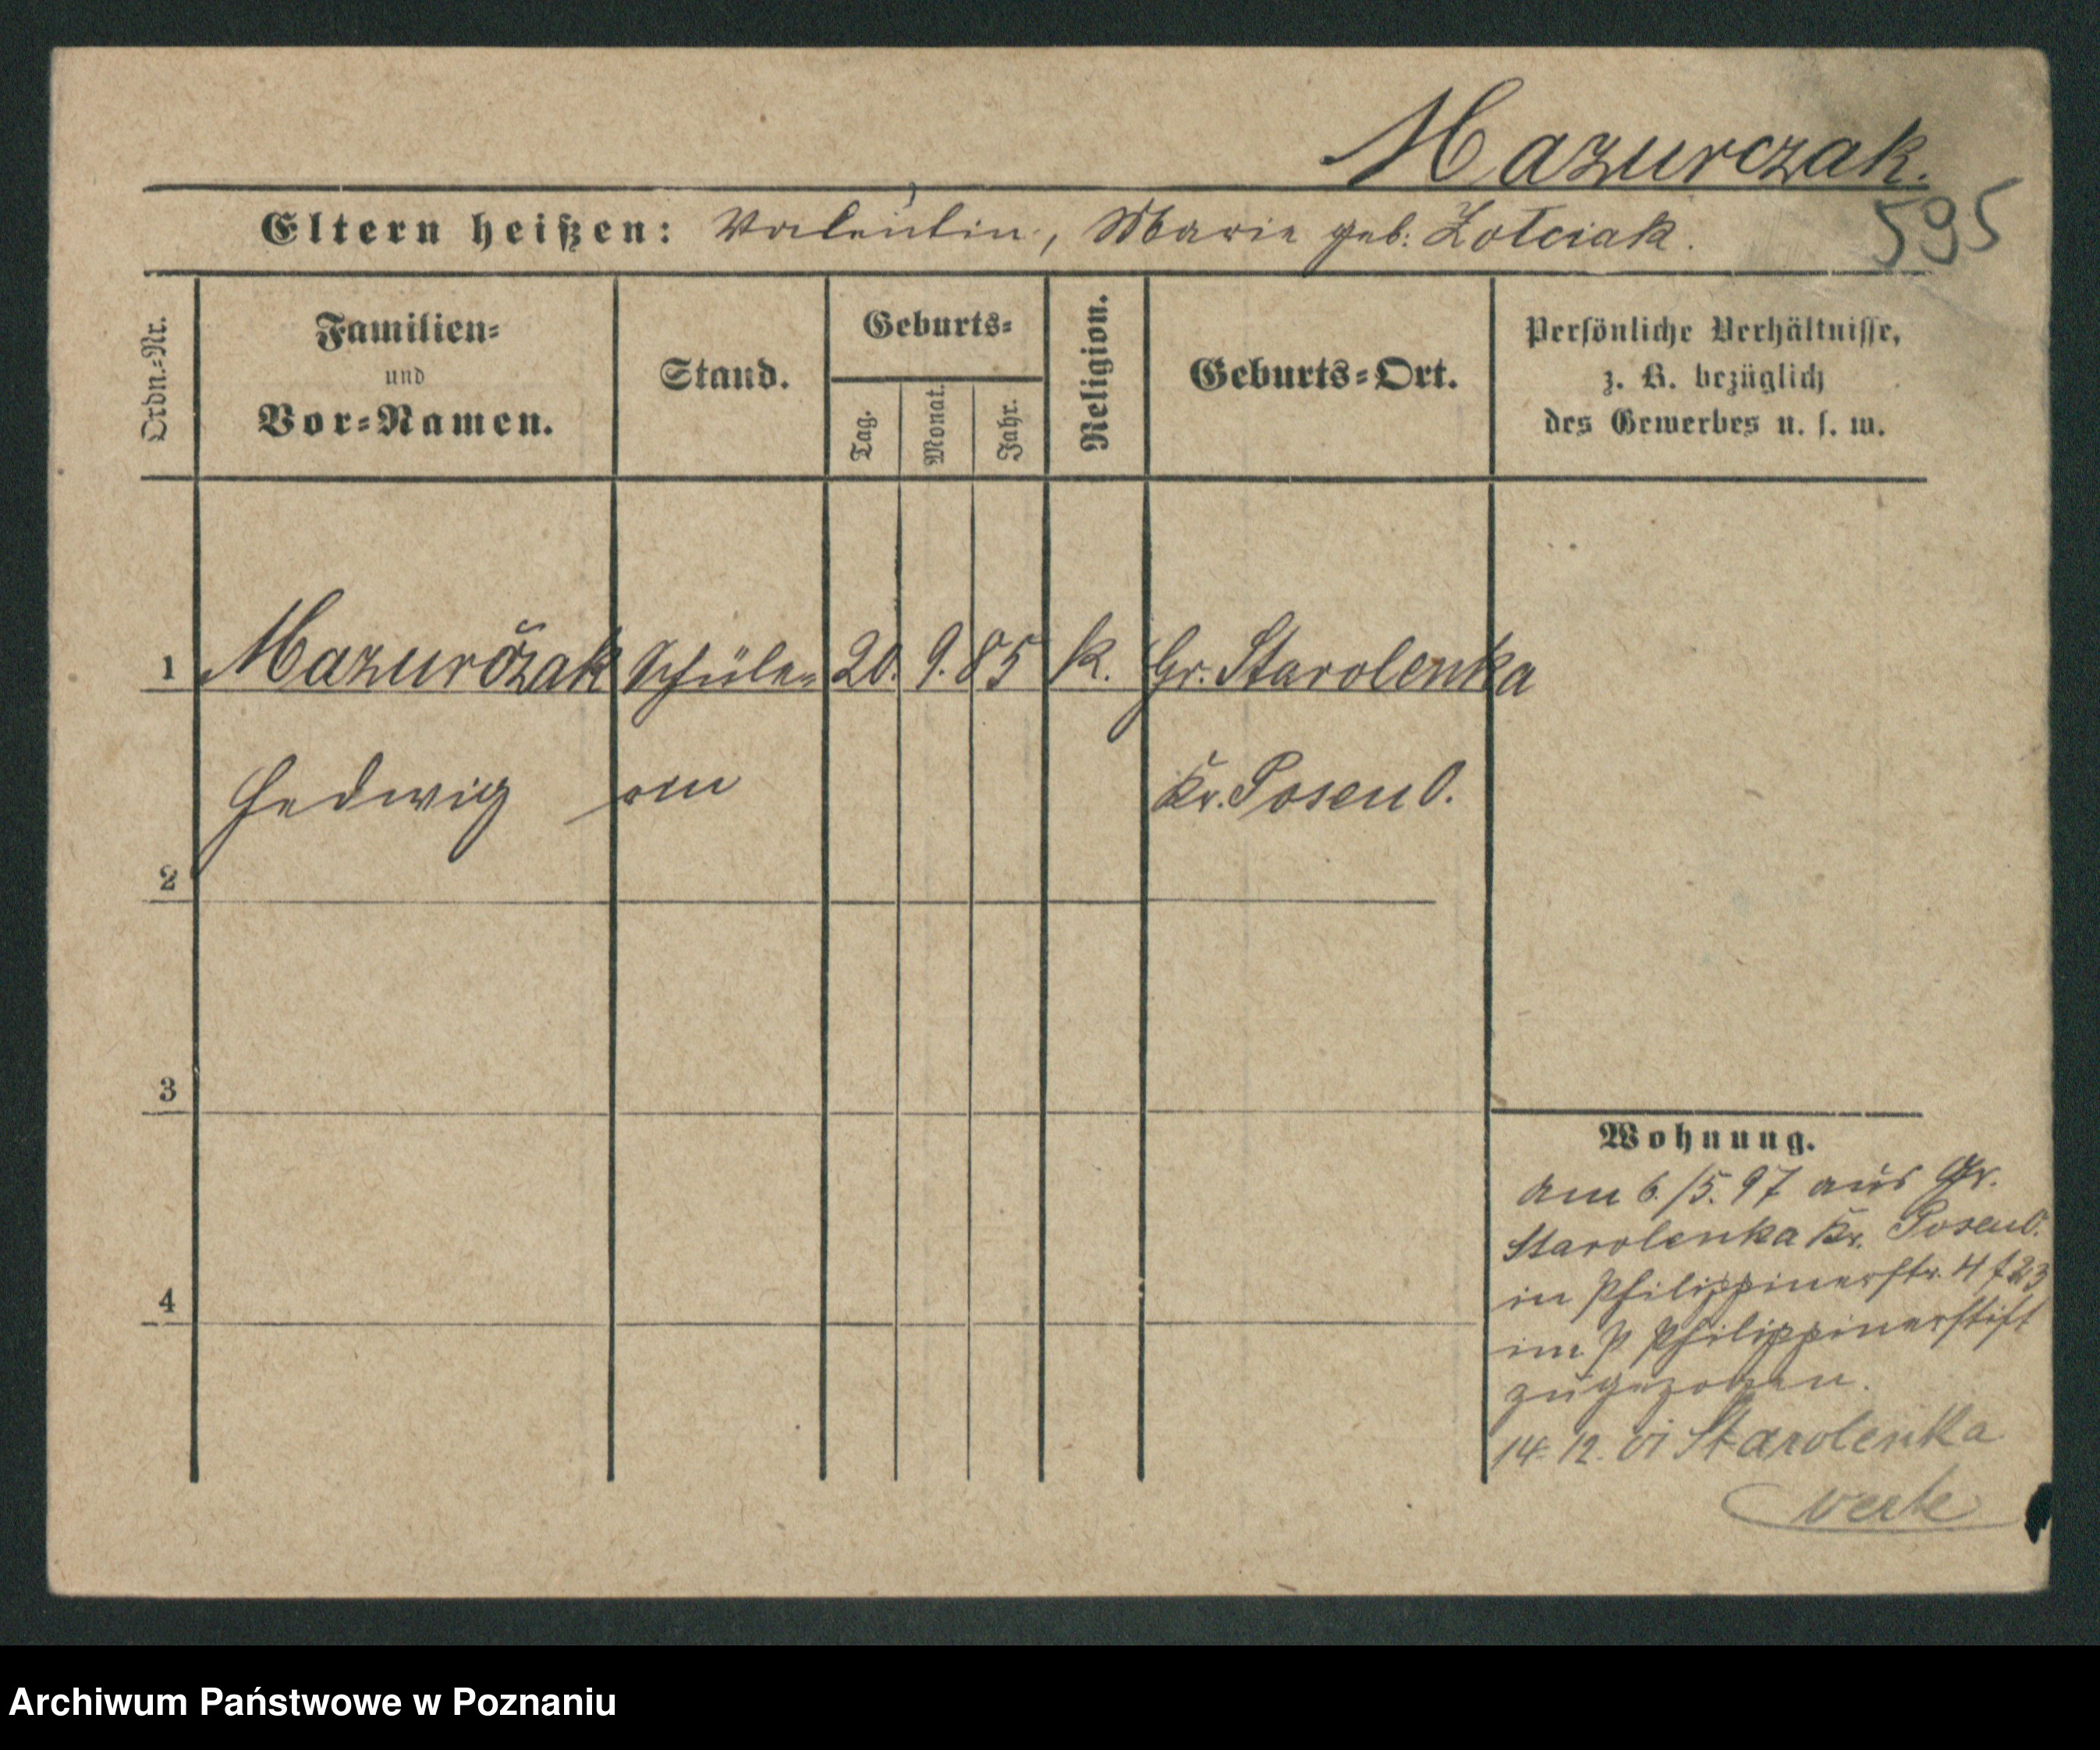 Mazurczak.
595
Eltern heißen: Valentin, Marie geb: Żołciak.
Ordn.-Nr.
Familien-
und
Vor-Namen.
Stand.
Geburts-
Tag.
Monat.
Jahr.
Religion.
Geburts-Ort.
Persönliche Verhältnisse,
z. B. bezüglich
des Gewerbes u. s. w.
1 Mazurczak Schüle= 20. 9. 85 K. Gr. Starolenka
Hedwig rin Kr. Posen O.
2
3
4
Wohnung.
am 6./5. 97 aus Gr.
Starolenka Kr. Posen O.
in Philippinerstr. 4
im Philippinerstift
zugezogen.
14. 12. 01 Starolenka
Archiwum Państwowe w Poznaniu